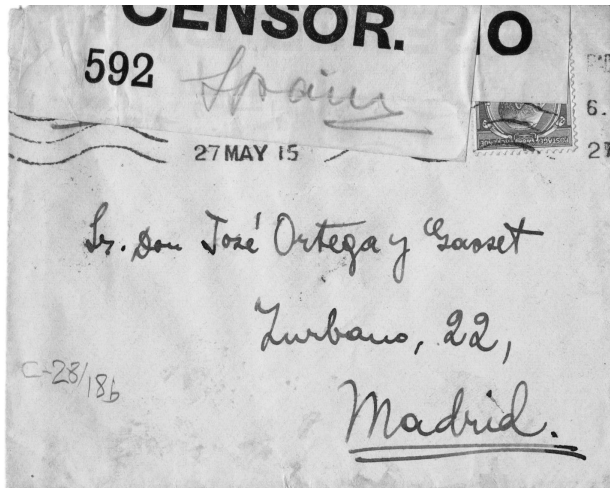 CENSOR.
592
Spain
27 MAY 15
6.
27
Sr. Don José Ortega y Gasset
Zurbano, 22,
Madrid.
C-28/18b